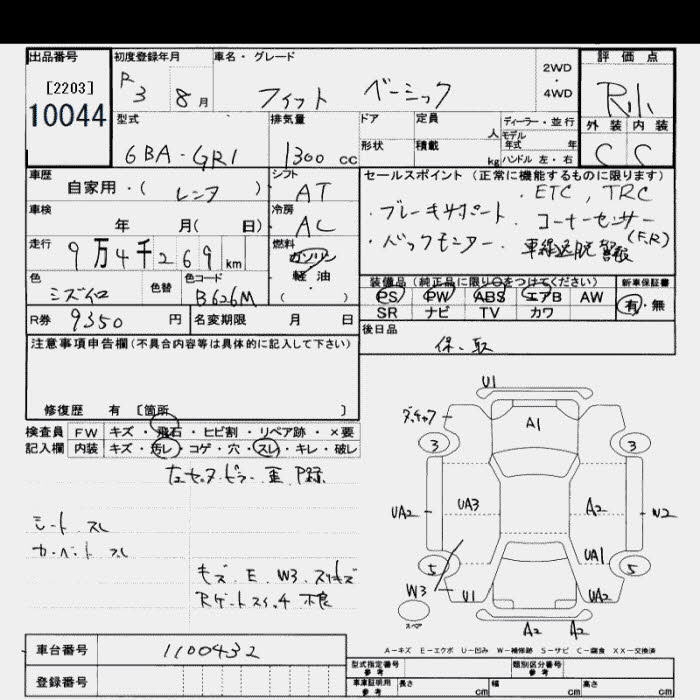 出品番号
[2203]
10044
初度登録年月
R 3 8 月
車名・グレード
フィット ベーシック
2WD
・
4WD
評価点
R小
外装 内装
C C
型式
6BA-GR1
排気量
1300 cc
ドア
定員
人
形状
積載
kg
ディーラー・並行
モデル
年式 年
ハンドル 左・右
車歴
自家用・( レンタ )
シフト
AT
車検
年 月( 日)
冷房
AC
走行
9万4千269 km
燃料
ガソリン
軽・油
( )
色
ミズイロ
色替
色コード
B626M
R券 9350 円
名変期限 月 日
セールスポイント (正常に機能するものに限ります)
・ブレーキサポート ・ETC, TRC
・コーナーセンサー (F,R)
・バックモニター ・車線逸脱警報
装備品 (純正品に限り○をつけてください)
新車保証書
PS PW ABS エアB AW
SR ナビ TV カワ
有・無
後日品
保・取
注意事項申告欄 (不具合内容等は具体的に記入して下さい)
修復歴 有 〔箇所 〕
検査員 FW キズ・飛石・ヒビ割・リペア跡・×要
記入欄 内装 キズ・汚レ・コゲ・穴・スレ・キレ・破レ
シート スレ
カーペット スレ
キズ. E. W3.
U1
A1
3 3
UA2
UA3
A2
W2
UA1
5 5
W3
U1
UA2
スペア
A2 A2
A-キズ E-エクボ U-凹み W-補修跡 S-サビ C-腐食 XX-交換済
車台番号 1100432
登録番号
型式指定番号
参考
類別区分番号
参考
車庫証明用
参考
長さ cm 幅 cm 高さ cm